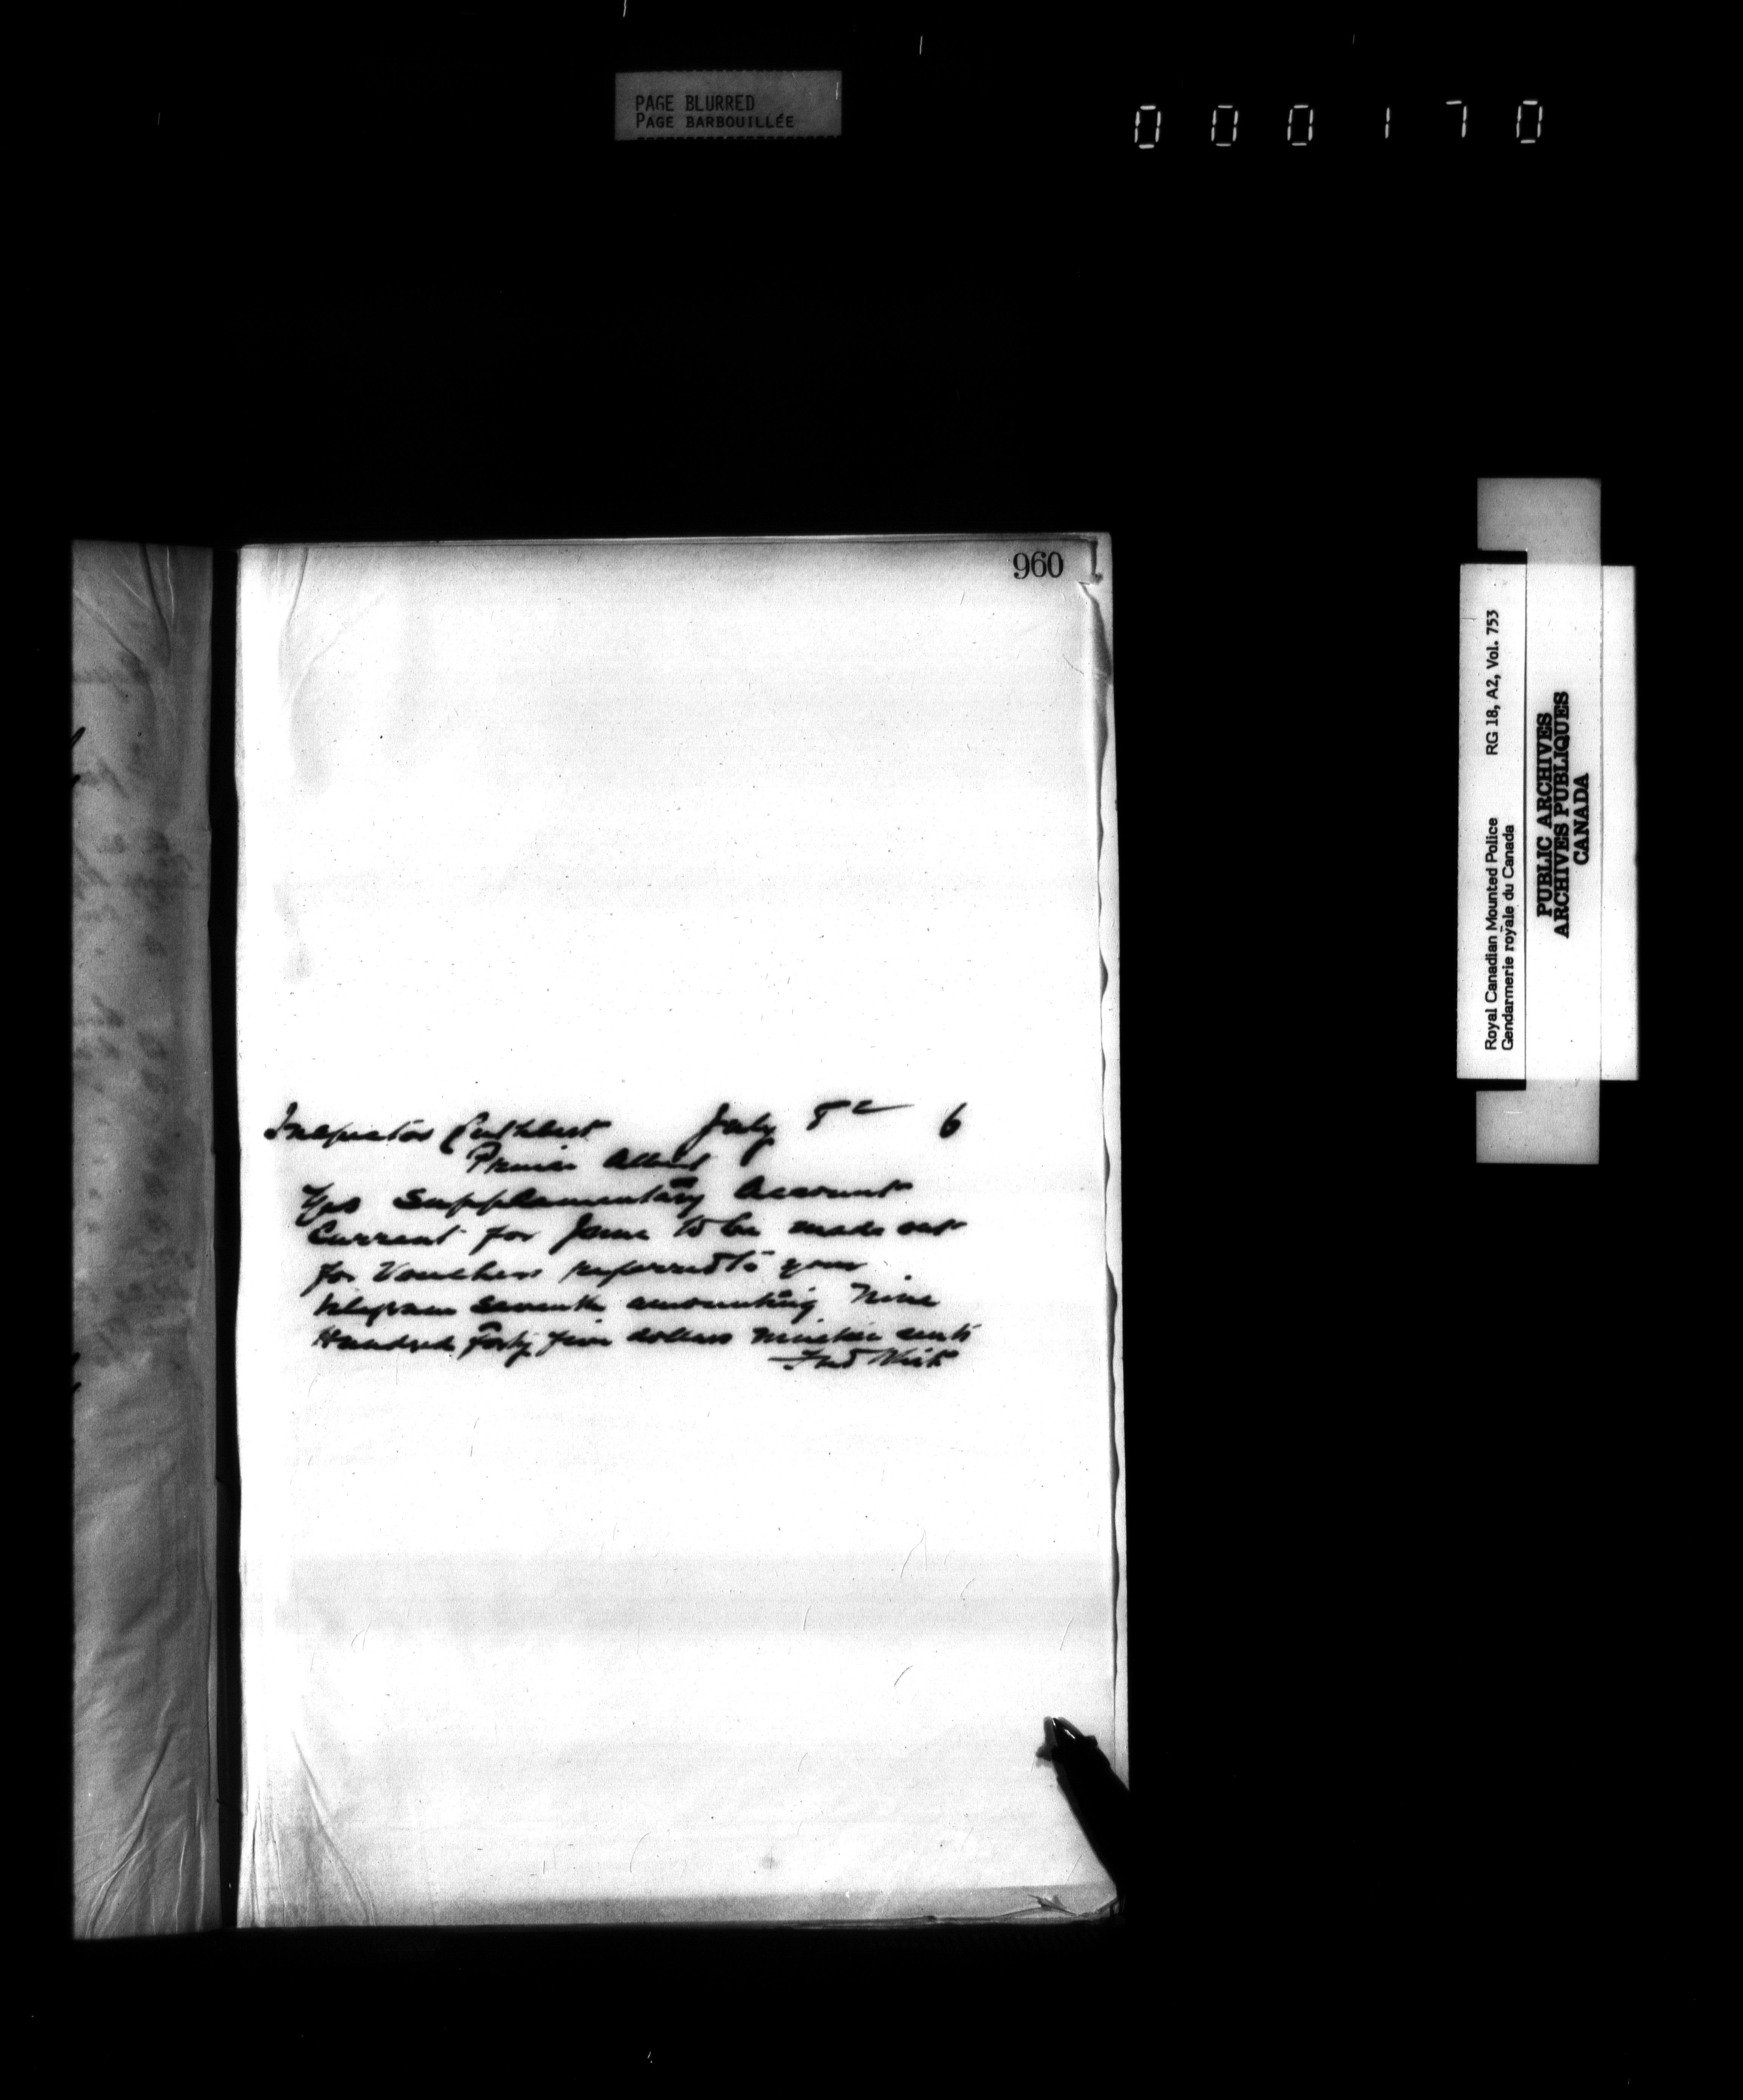 PAGE BLURRED
PAGE BARBOUILLÉE
000170
960
Inspector Cuthbert July 8th 6
Prince Albert
Yes Supplementary Account
Current for June to be made out
for Vouchers referred to your
telegram seventh amounting Nine
Hundred Forty five dollars nineteen cents
Fred White
Royal Canadian Mounted Police RG 18, A2, Vol. 753
Gendarmerie royale du Canada
PUBLIC ARCHIVES
ARCHIVES PUBLIQUES
CANADA